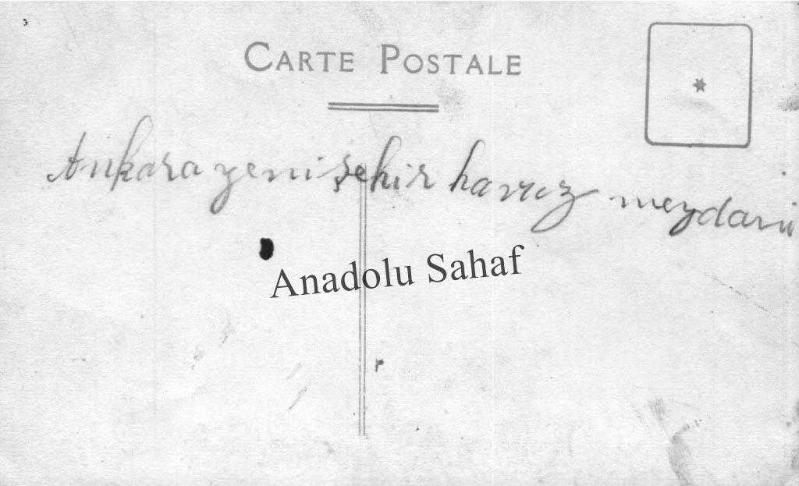 CARTE POSTALE
Ankara yenişehir havuz meydanı
Anadolu Sahaf